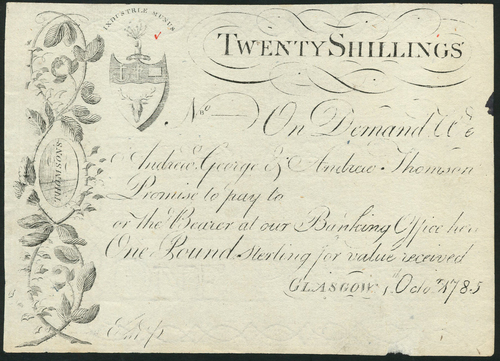 INDUSTRIÆ MUNUS
TWENTY SHILLINGS
No
On Demand We
Andrew, George & Andrew Thomson
THOMSONS
Promise to pay to
or the Bearer at our Banking Office here
One Pound sterling for value received
GLASGOW 1st Octo. 1785